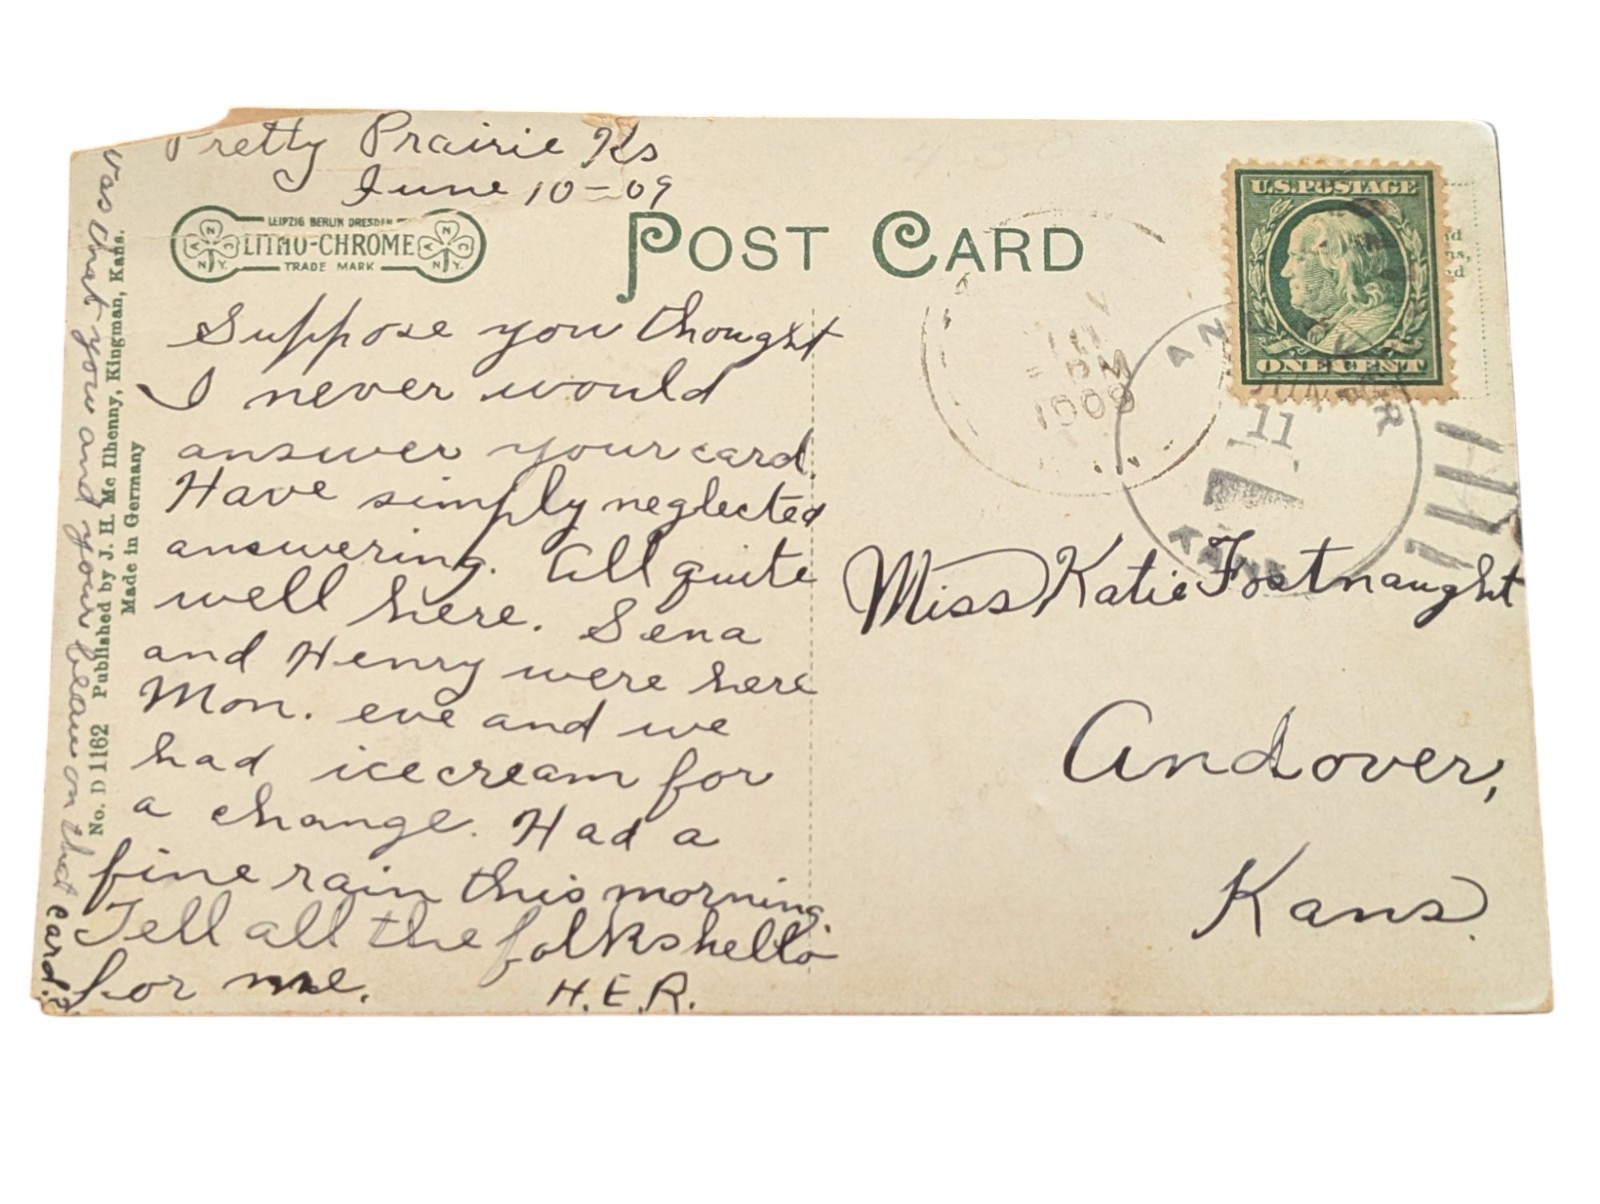 Pretty Prairie Ks
June 10-09
LEIPZIG BERLIN DRESDEN
LITHO-CHROME
TRADE MARK
A N C
N.Y.
A N C
N.Y.
POST CARD
U.S. POSTAGE
ONE CENT
Suppose you thought
I never would
answer your card.
Have simply neglected
answering. All quite
well here. Sena
and Henry were here
Mon. eve and we
had icecream for
a change. Had a
fine rain this morning.
Tell all the folks hello
for me. H.E.R.
Was that you and your beau on that card?
No. D 1162 Published by J. H. Mc Ilhenny, Kingman, Kans.
Made in Germany
PM
1909
11
Miss Katie Fostnaught
Andover,
Kans.